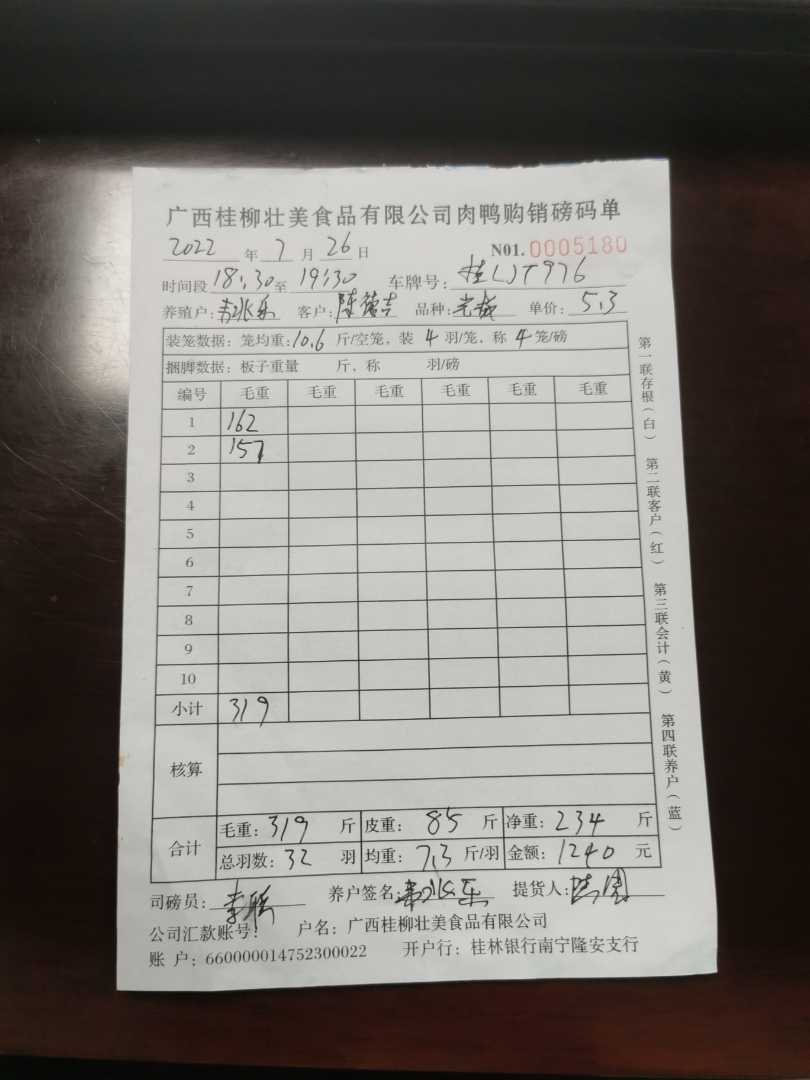 广西桂柳壮美食品有限公司肉鸭购销磅码单
2022 年 7 月 26 日 N01. 0005180
时间段 18:30 至 19:30 车牌号: 桂LJT976
养殖户: 客户: 陈德吉 品种: 单价: 5.3
装笼数据: 笼均重: 10.6 斤/空笼, 装 4 羽/笼, 称 4 笼/磅
捆脚数据: 板子重量 斤, 称 羽/磅
编号 毛重 毛重 毛重 毛重 毛重 毛重
1 162
2 157
3
4
5
6
7
8
9
10
小计 319
核算
合计 毛重: 319 斤 皮重: 85 斤 净重: 234 斤
总羽数: 32 羽 均重: 7.3 斤/羽 金额: 1240 元
司磅员: 养户签名: 提货人:
公司汇款账号: 户名: 广西桂柳壮美食品有限公司
账 户: 660000014752300022 开户行: 桂林银行南宁隆安支行
第一联存根(白) 第二联客户(红) 第三联会计(黄) 第四联养户(蓝)